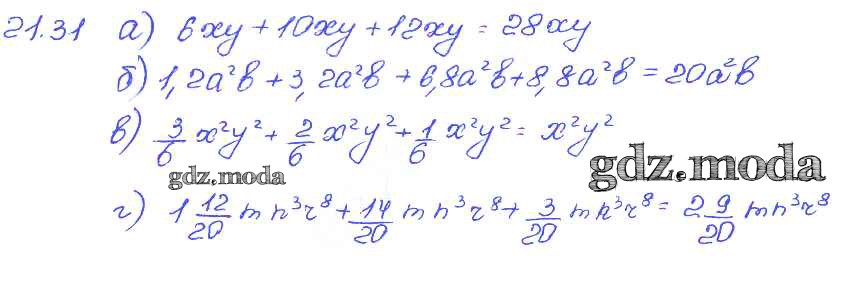 21.31 а) 6xy + 10xy + 12xy = 28xy
б) 1,2a²b + 3,2a²b + 6,8a²b + 8,8a²b = 20a²b
в) 3/6 x²y² + 2/6 x²y² + 1/6 x²y² = x²y²
gdz.moda
gdz.moda
г) 1 12/20 mn³r⁸ + 14/20 mn³r⁸ + 3/20 mn³r⁸ = 2 9/20 mn³r⁸